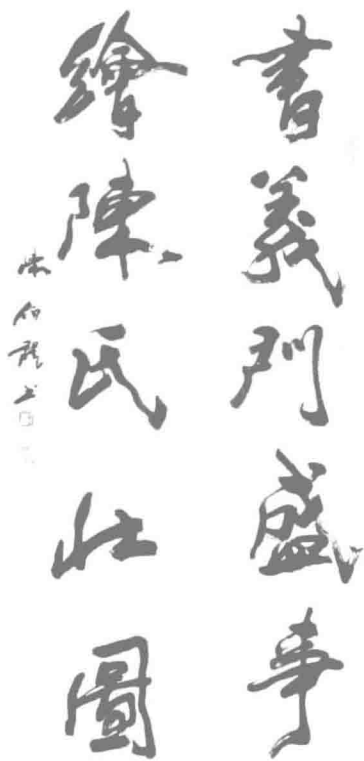 書義門盛事
繪陳氏壯圖
伯龍書